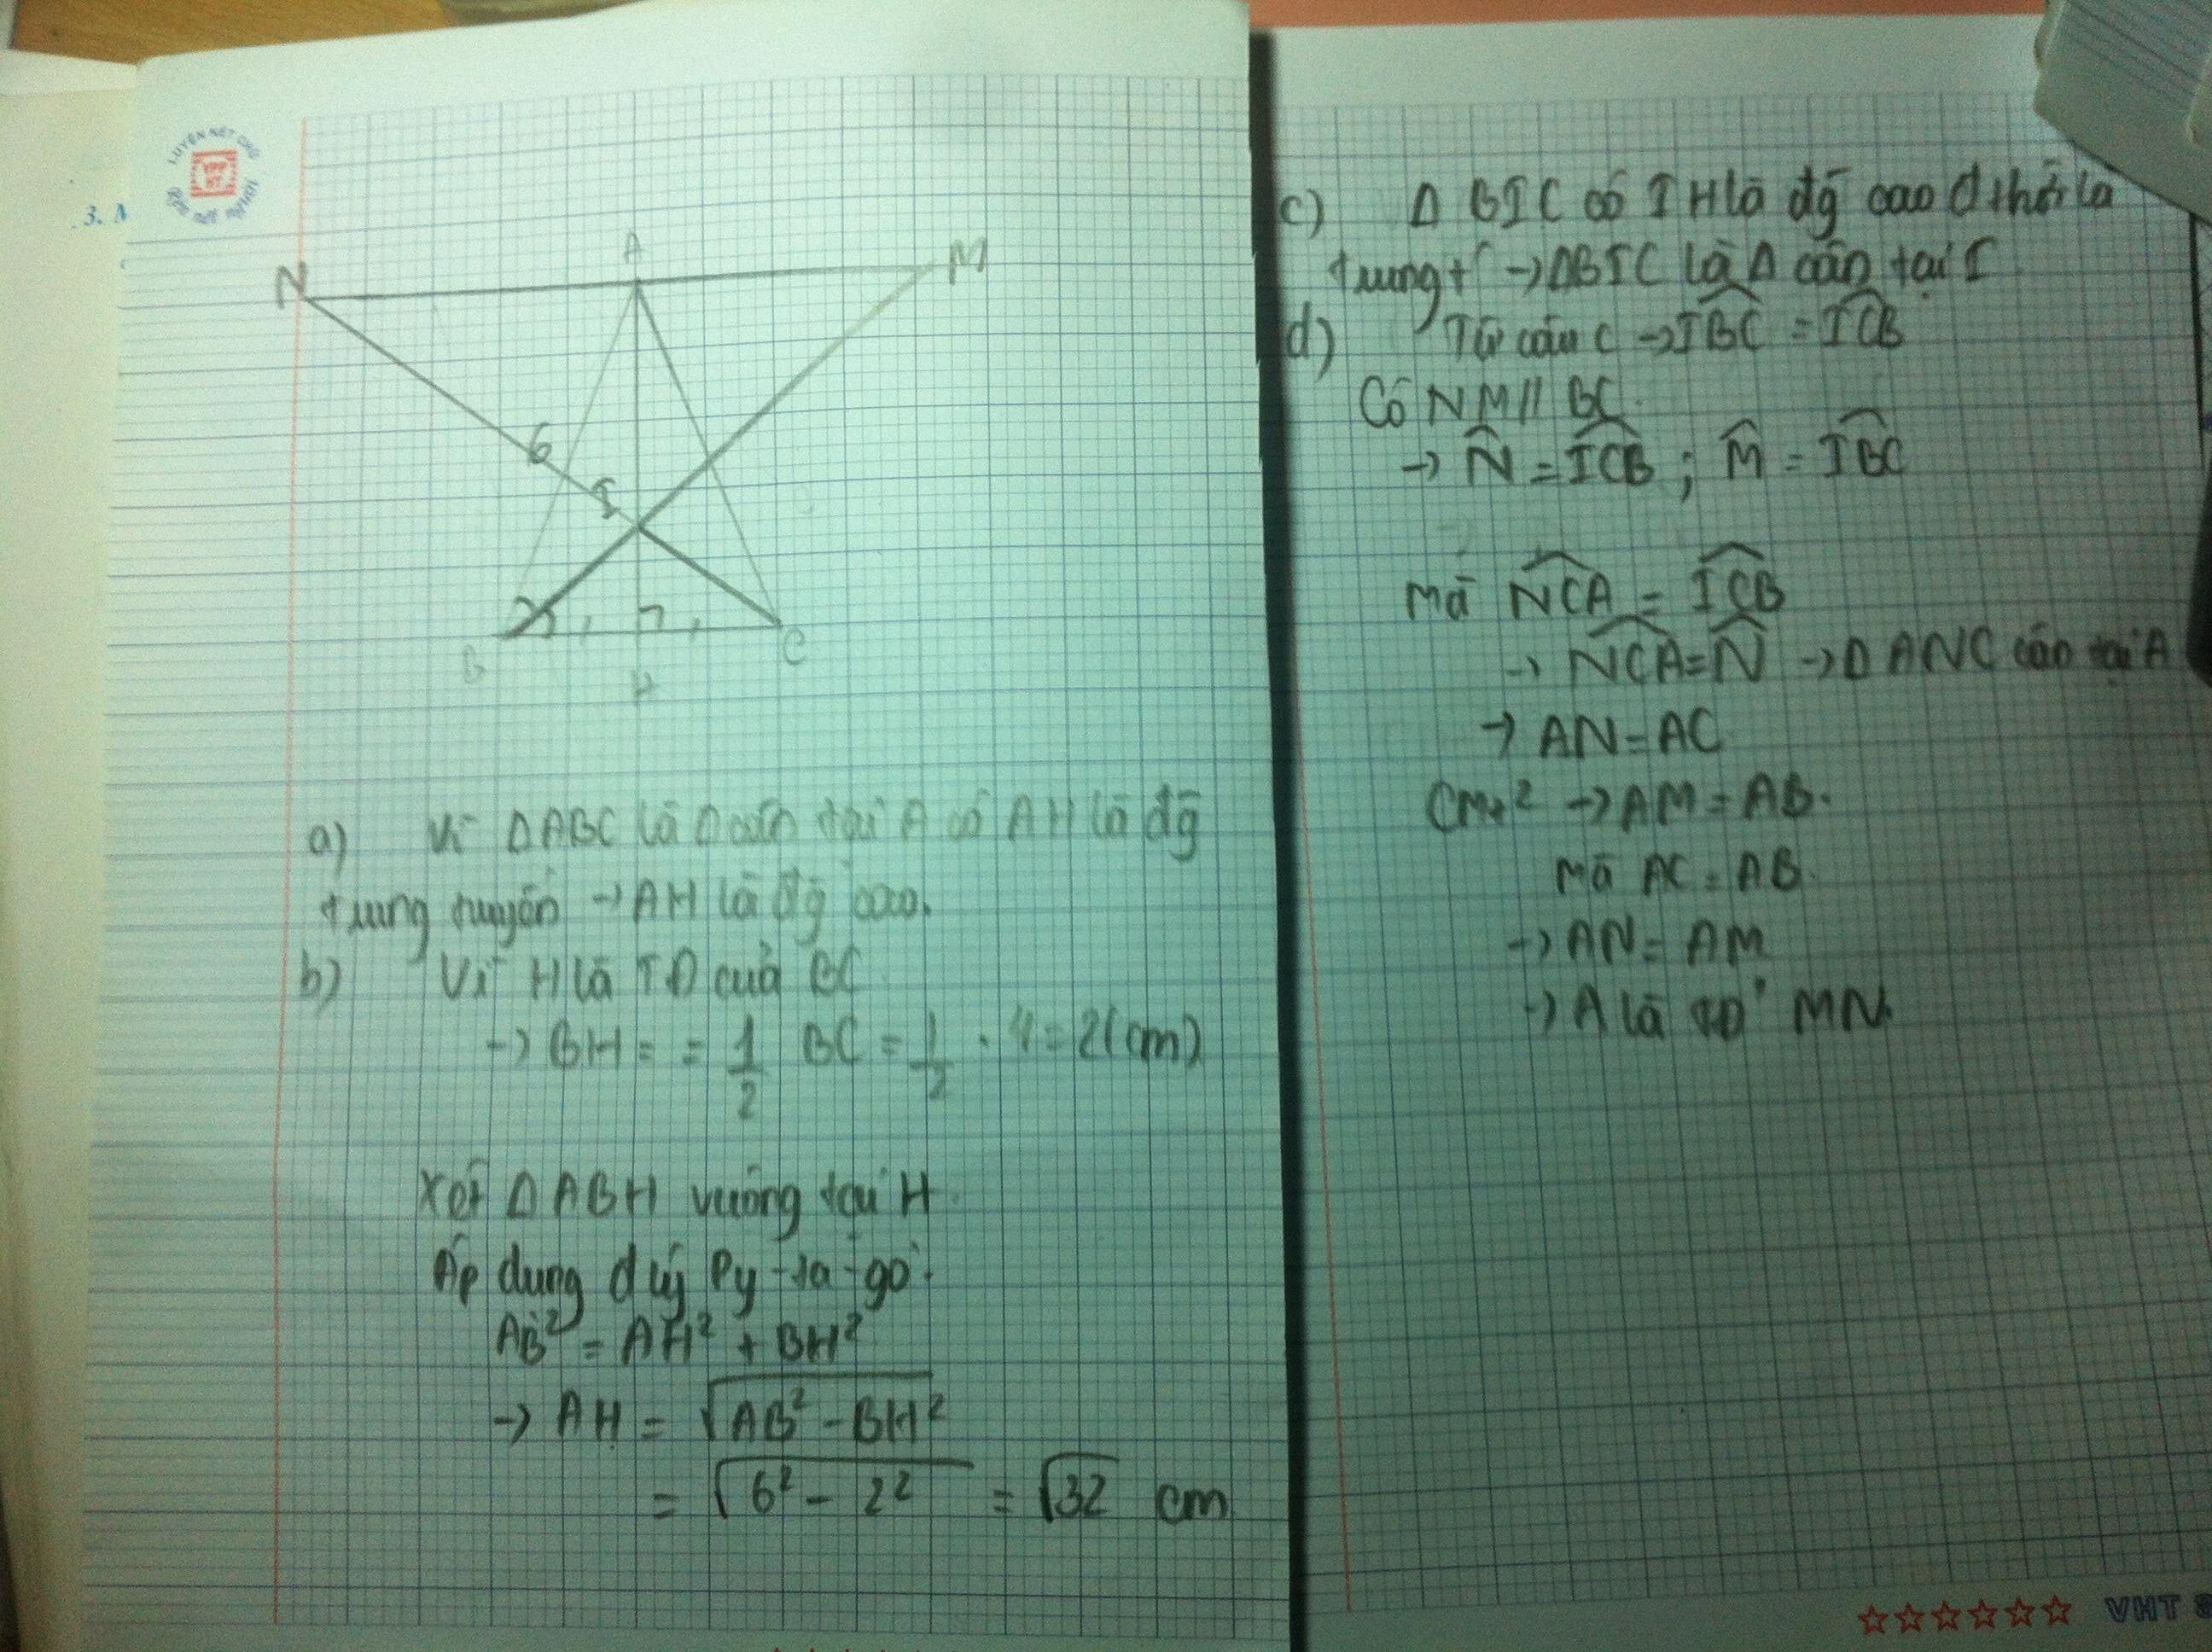 LUYỆN NÉT CHỮ
Rèn nết người
3.
N
A
M
6
I
B
H
C
a) Vì ΔABC là Δ cân tại A có AH là đg̀
trung tuyến → AH là đg̀ cao.
b) Vì H là TĐ của BC
→ BH = = 1/2 BC = 1/2 . 4 = 2(cm)
Xét ΔABH vuông tại H.
Áp dung đ lý Py-ta-go:
AB² = AH² + BH²
→ AH = √(AB² - BH²)
= √(6² - 2²) = √32 cm
c) Δ BIC có IH là đg̀ cao đthời là
trung t² → ΔBIC là Δ cân tại I
d) Từ câu c → IBC = ICB
Có NM // BC.
→ N̂ = ICB ; M̂ = IBC
Mà NCA = ICB
→ NCA = N̂ → Δ ANC cân tại A
→ AN = AC
CMt² → AM = AB.
Mà AC = AB.
→ AN = AM
→ A là TĐ' MN.
☆☆☆☆☆☆ VHT